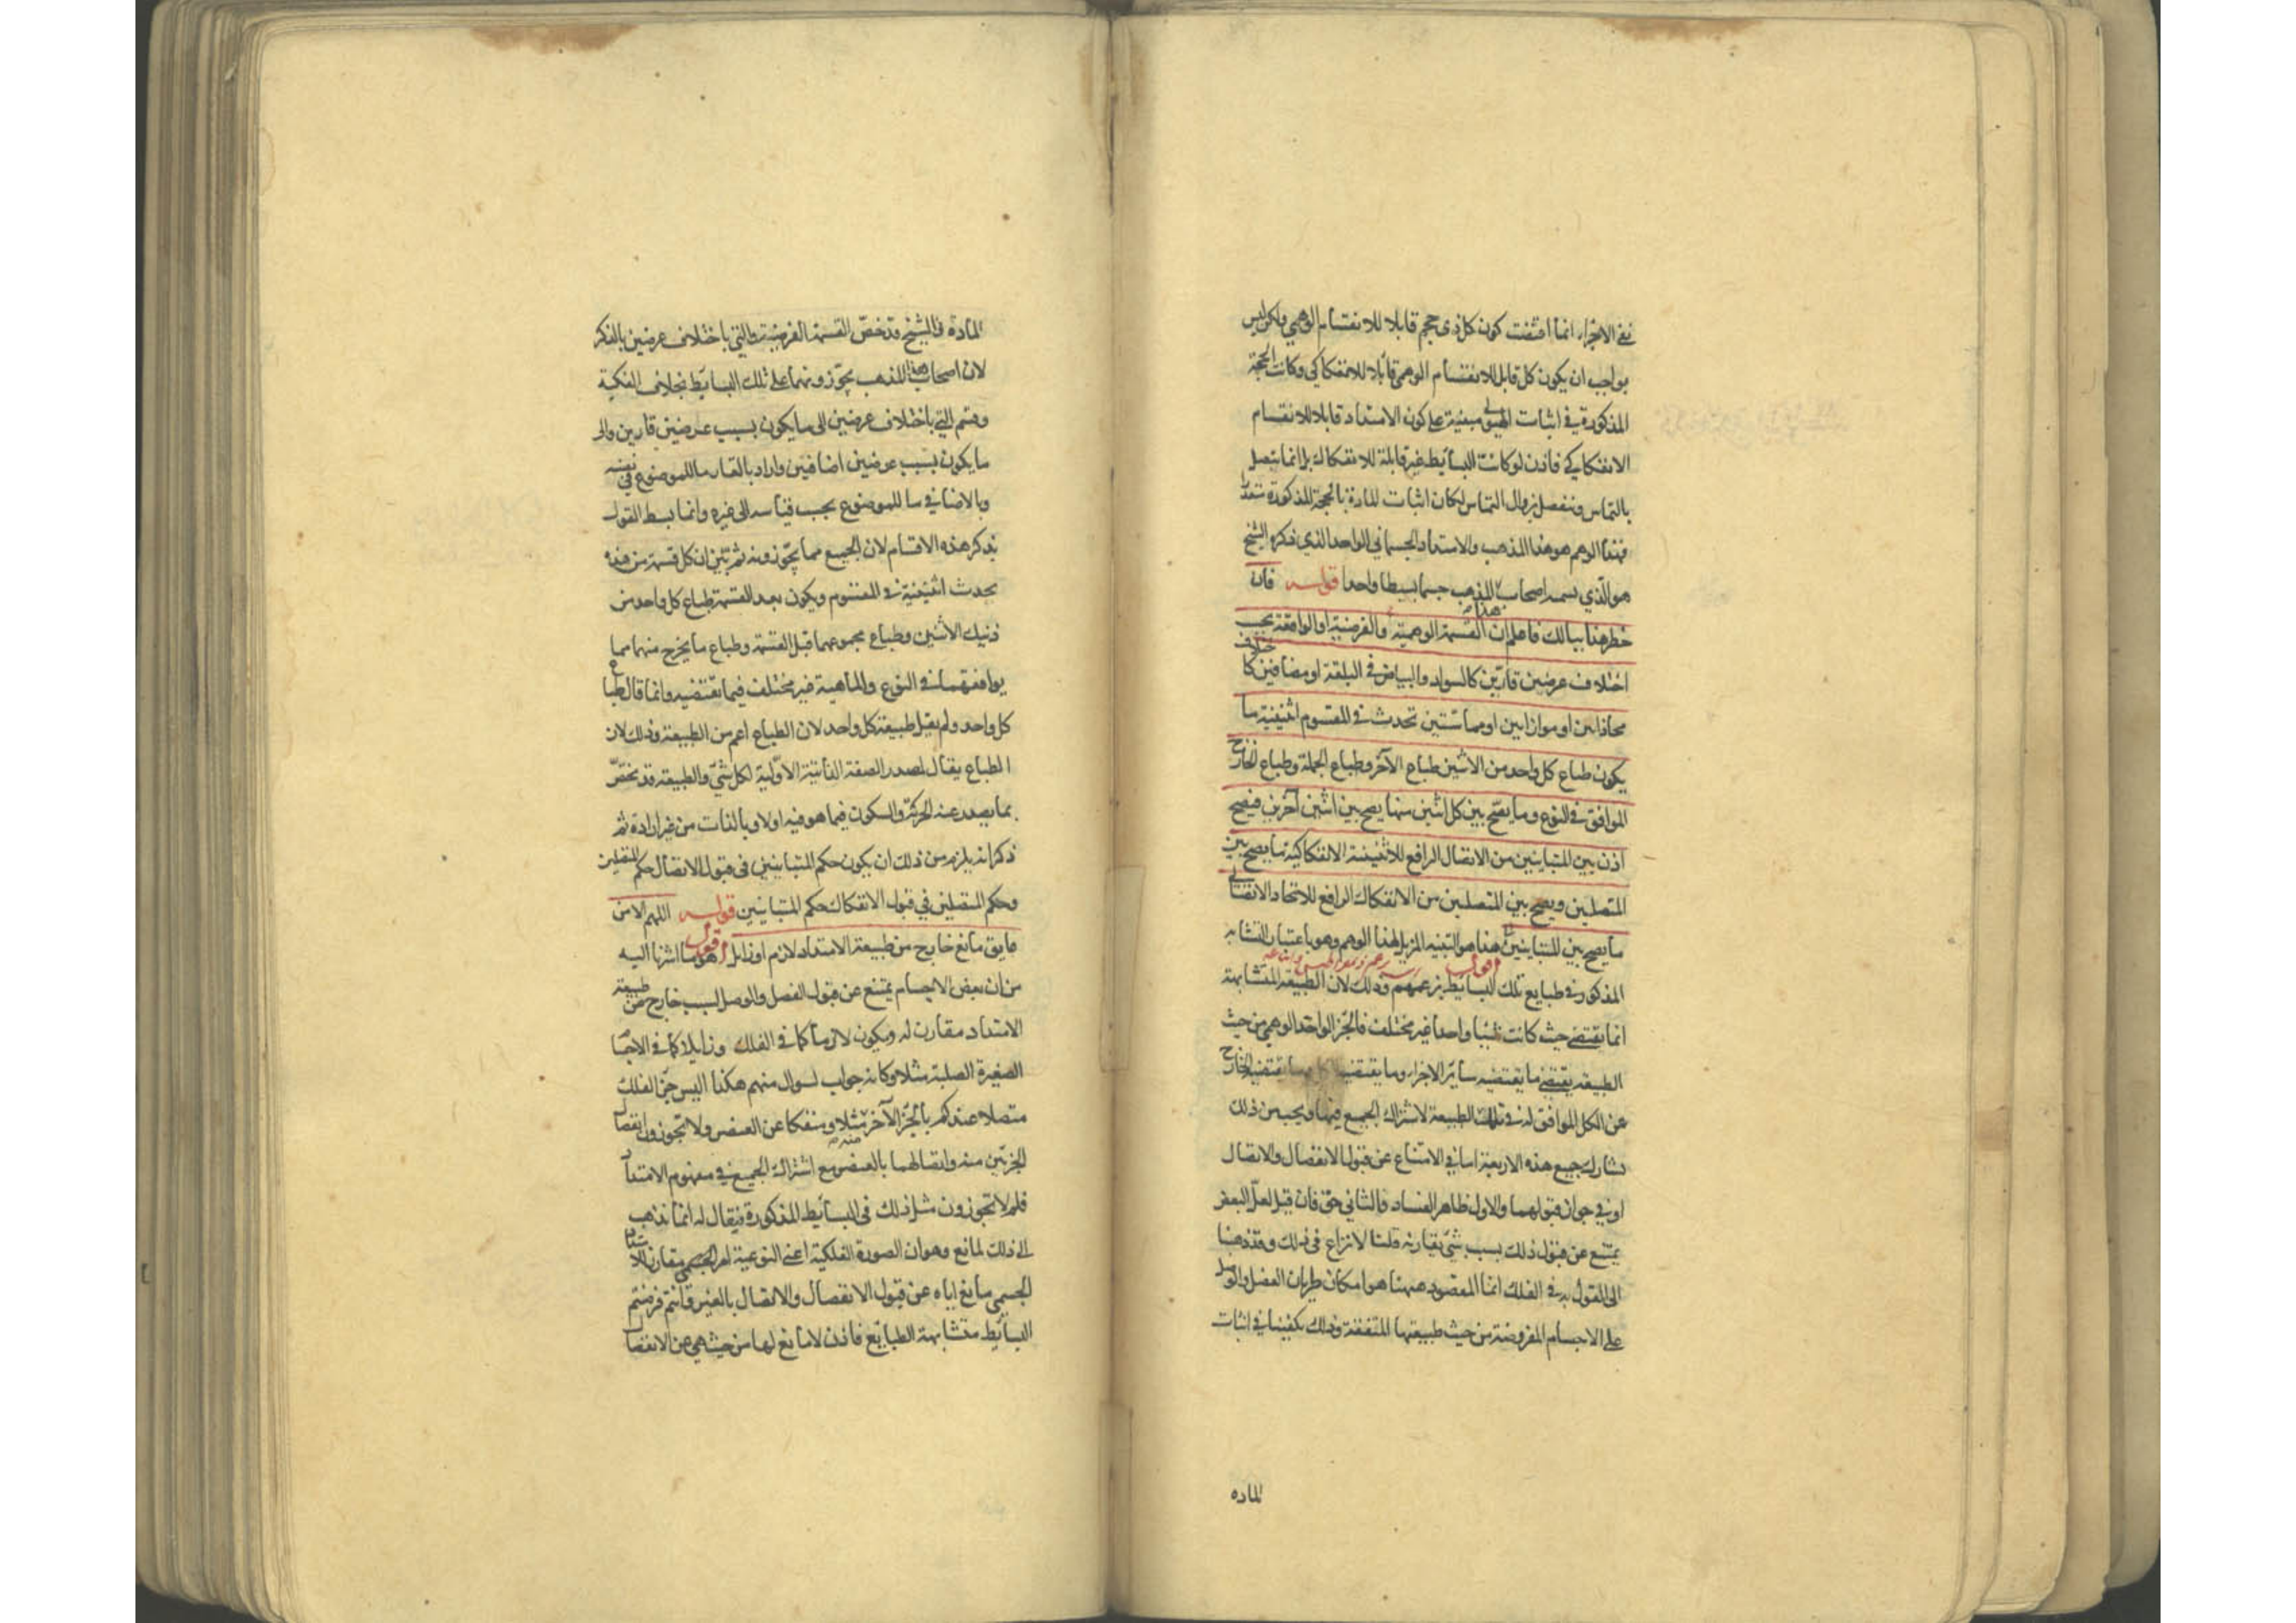 نفى الاجزاء انما اقتضت كون كل ذى حجم قابلا للانقسام الوهمي ولكن ليس
بواجب ان يكون كل قابل للانقسام الوهمي قابلا للانفكاكي وكانت الحجة
المذكورة في اثبات الهيولى مبنية على كون الامتداد قابلا للانقسام
الانفكاكي فاذن لو كانت البسائط غير قابلة للانفكاك بل انما تتصل
بالتماس وتنفصل بزوال التماس لكان اثبات المادة بالحجة المذكورة متعذرا
فهذا الوهم هو هذا المذهب والامتداد الجسماني الواحد الذي ذكره الشيخ
هو الذي يسميه اصحاب هذا المذهب جسما بسيطا واحدا قوله فان
خطر هذا ببالك فاعلم ان القسمة الوهمية والفرضية او الواقعة بحسب
اختلاف عرضين قارين كالسواد والبياض في البلقة او مضافين كاختلاف
محاذاتين او موازاتين او مماستين تحدث في المقسوم اثنينية ما
يكون طباع كل واحد من الاثنين طباع الآخر وطباع الجملة وطباع الخارج
الموافق في النوع وما يصح بين كل اثنين منها يصح بين اثنين آخرين فيصح
اذن بين المتباينين من الاتصال الرافع للاثنينية الانفكاكية ما يصح بين
المتصلين ويصح بين المتصلين من الانفكاك الرافع للاتحاد الاتصالي
ما يصح بين المتباينين هذا هو التنبيه المزيل لهذا الوهم وهو باعتبار التشابه
المذكور في طبايع تلك البسائط بزعمهم وذلك لان الطبيعة المتشابهة
انما تقتضى حيث كانت شيئا واحدا غير مختلف فالجزء الواحد الوهمي من حيث
الطبيعة يقتضى ما يقتضيه سائر الاجزاء وما يقتضيه الخارج
عن الكل الموافق له في تلك الطبيعة لاشتراك الجميع فيها ويجب من ذلك
تشارك جميع هذه الاربعة اما في الامتناع عن قبول الانفصال والاتصال
او في جواز قبولهما والاول ظاهر الفساد والثاني حق فان قيل لعل البعض
يمتنع عن قبول ذلك بسبب شئ يقارنه قلنا لا نزاع في ذلك وقد ذهبنا
الى القول به في الفلك انما المقصود ههنا هو امكان طريان الفصل والوصل
على الاجسام المفروضة من حيث طبيعتها المتفقة وذلك يكفينا في اثبات
الماده
المادة والشيخ قد خص القسمة الفرضية والتي باختلاف عرضين بالذكر
لان اصحاب هذا المذهب يجوزونهما على تلك البسائط بخلاف الفكية
وقسم التي باختلاف عرضين الى ما يكون بسبب عرضين قارين والى
ما يكون بسبب عرضين اضافيين واراد بالقار ما للموضوع في نفسه
وبالاضافي ما للموضوع بحسب قياسه الى غيره وانما بسط القول
بذكر هذه الاقسام لان الجميع مما يجوزونه ثم بين ان كل قسمة من هذه
يحدث اثنينية في المقسوم ويكون بعد القسمة طباع كل واحد من
ذينك الاثنين وطباع مجموعهما قبل القسمة وطباع ما يخرج منهما مما
يوافقهما في النوع والماهية غير مختلف فيما تقتضيه وانما قال طباع
كل واحد ولم يقل طبيعة كل واحد لان الطباع اعم من الطبيعة وذلك لان
الطباع يقال لمصدر الصفة الذاتية الاولية لكل شئ والطبيعة قد تختص
بما يصدر عنه الحركة والسكون فيما هو فيه اولا وبالذات من غير ارادة ثم
ذكر انه يلزم من ذلك ان يكون حكم المتباينين في قبول الاتصال حكم المتصلين
وحكم المتصلين في قبول الانفكاك حكم المتباينين قوله اللهم الا من
عايق مانع خارج من طبيعة الامتداد لازم او زايل اقول هو ما اشرنا اليه
من ان بعض الاجسام يمتنع عن قبول الفصل والوصل لسبب خارج من طبيعة
الامتداد مقارن له ويكون لازما كما في الفلك وزايلا كما في الاجسام
الصغيرة الصلبة مثلا وكانه جواب لسوال منهم هكذا اليس جزء الفلك
متصلا عندكم بالجزء الآخر مثلا ومنفكا عن العنصر ولا تجوزون انفصال
الجزئين منه واتصالهما بالعنصر مع اشتراك الجميع في مفهوم الامتداد
فلم لا تجوزون مثل ذلك في البسائط المذكورة فيقال له انما نذهب
الى ذلك لمانع وهو ان الصورة الفلكية اعنى النوعية امر مقارن للامتداد
الجسمي مانع اياه عن قبول الانفصال والاتصال بالغير وانتم فرضتم
البسائط متشابهة الطبائع فاذن لا مانع لها من حيث هي عن الانفصال